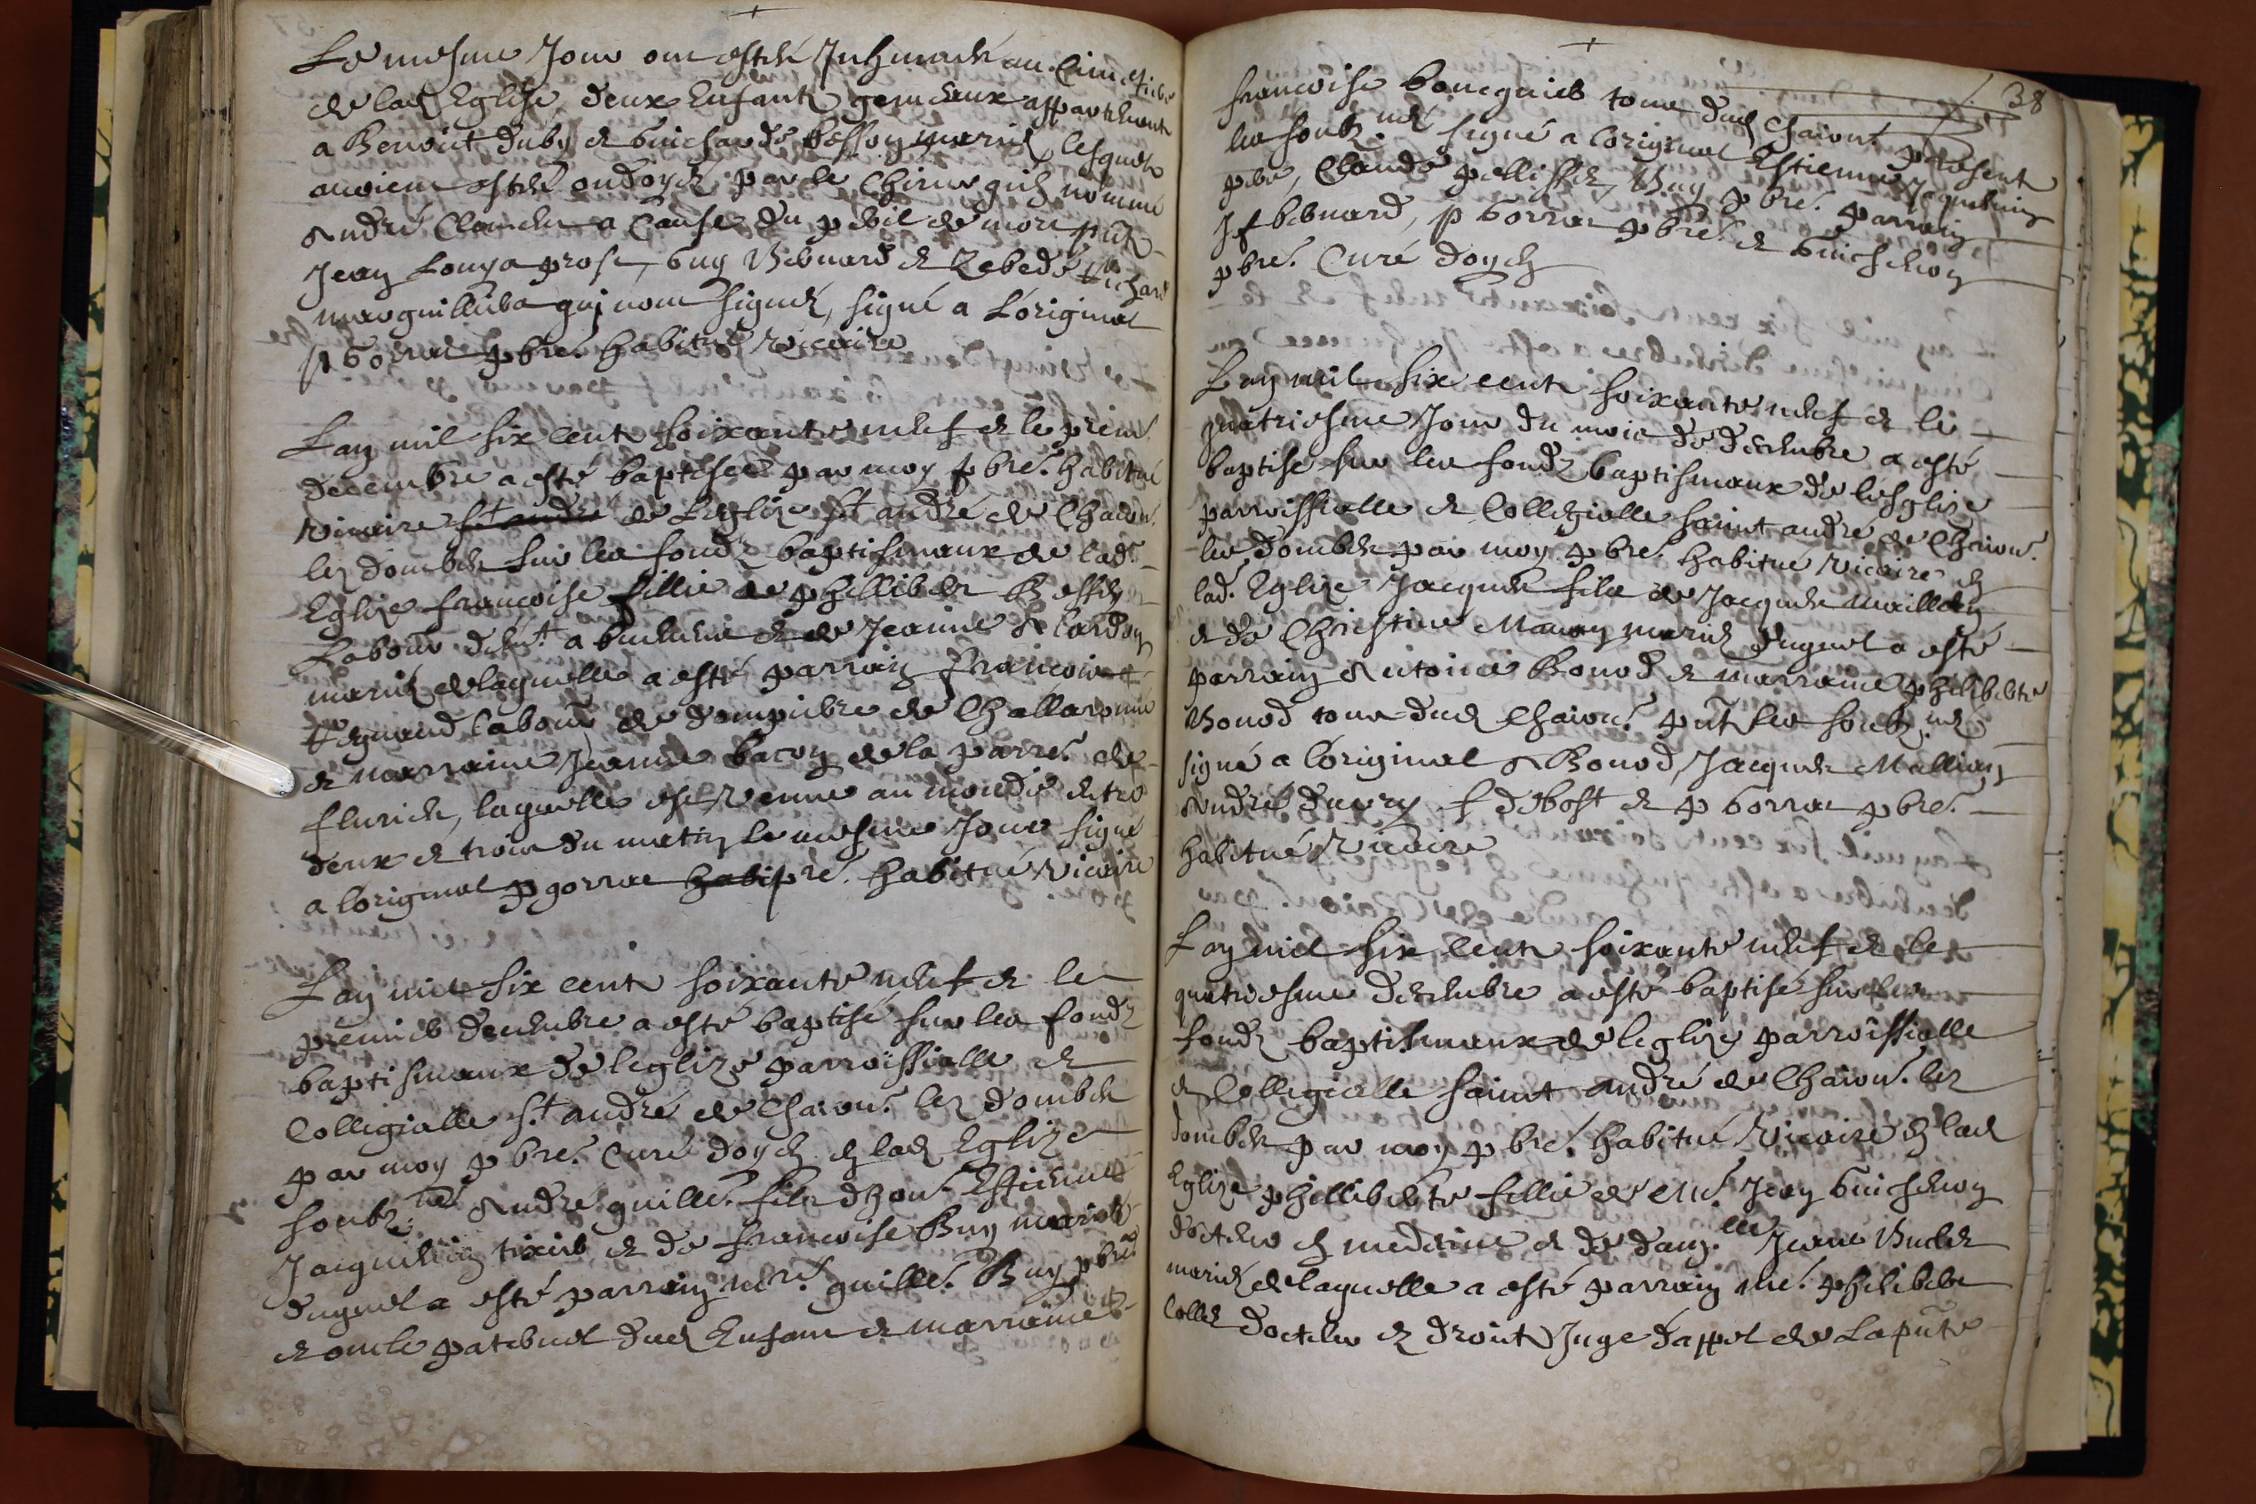 Le mesme Jour ont estés Inhumés au Cimetiere
de lad Eglise, deux Enfants gemeaux appartenants
a Benoict duby et Guicharde besson mariés, lesquels
avoient estés ondoyés par le Chirurgien nommé
André Claude a Cause du peril de mort pnt
Jean Louys grose, Guy Besnard et Zebedé
marguilliers qui nont signés, signé a Loriginal
p Gorrat pbre habitué Vicaire
Lan mil six cents soixante neuf et le premr
decembre a esté baptisée par moy pbre. habitué
vicaire st andre de Leglize St andré de Chaon.
les dombes sur les fonds baptismaux de lad.
Eglize francoise fillie de phillibert
Labour de st a et de Jeanne
mariés de laquelle a esté parrain francois
Labour de dompierre de Challaronne
et marraine Jeanne bacon de la parre. de
flurieu, laquelle est venue au monde entre
deux et trois du matin le mesme Jour signé
a loriginal p gorrat habi pre. habitué Vicaire
Lan mil six cents soixante neuf et le
premier decembre a esté baptisé sur les fonds
baptismaux de leglize parroissialle et
Collegialle st. andré de Chaon. les dombes
par moy pbre. Curé doyen en lad Eglize
soubz.né André guille. fils dhon. Estienne
Jaquemin tixier et de francoise Buy mariés
duquel a esté parrain mre. guille. Buy pbre
et oncle paternel dud Enfant et marraine
38
francoise boucquier tous dud Chaon. present
les soubz.nés signé a loriginal Estienne Jaquemin
pere, Claude pellissier, Buy pbre. parrain
J f bernard, p Gorrat pbre. et Guichenon
pbre. Curé doyen
Lan mil six cents soixante neuf et le
quatriesme Jour du mois de decembre a esté
baptise sur les fonds baptismaux de lesglize
parroissialle et Collegialle saint andré de Chaon.
les dombes par moy pbre. habitué vicaire en
lad. Eglize Jacques fils de Jacques
et de Christine mariés duquel a esté
parrain Antoine Bonod et marraine philiberte
Bonod tous dud Chaon. pnt les soubz.nés
signé a loriginal A Bonod, Jacques
André f debost et p Gorrat pbre.
habitué Vicaire
Lan mil six cents soixante neuf et le
quatriesme decembre a esté baptisé sur les
fonds baptismaux de leglize parroissialle
et Collegialle saint andré de Chaon. les
dombes par moy pbre. habitué Vicaire en lad
Eglize phillliberte fillie de Mre. Jean Guichenon
docteur en medecine et de dam.lle Jeanne
mariés de laquelle a esté parrain Mre. philibert
Collet docteur en droits Juge dappel de Lapnte